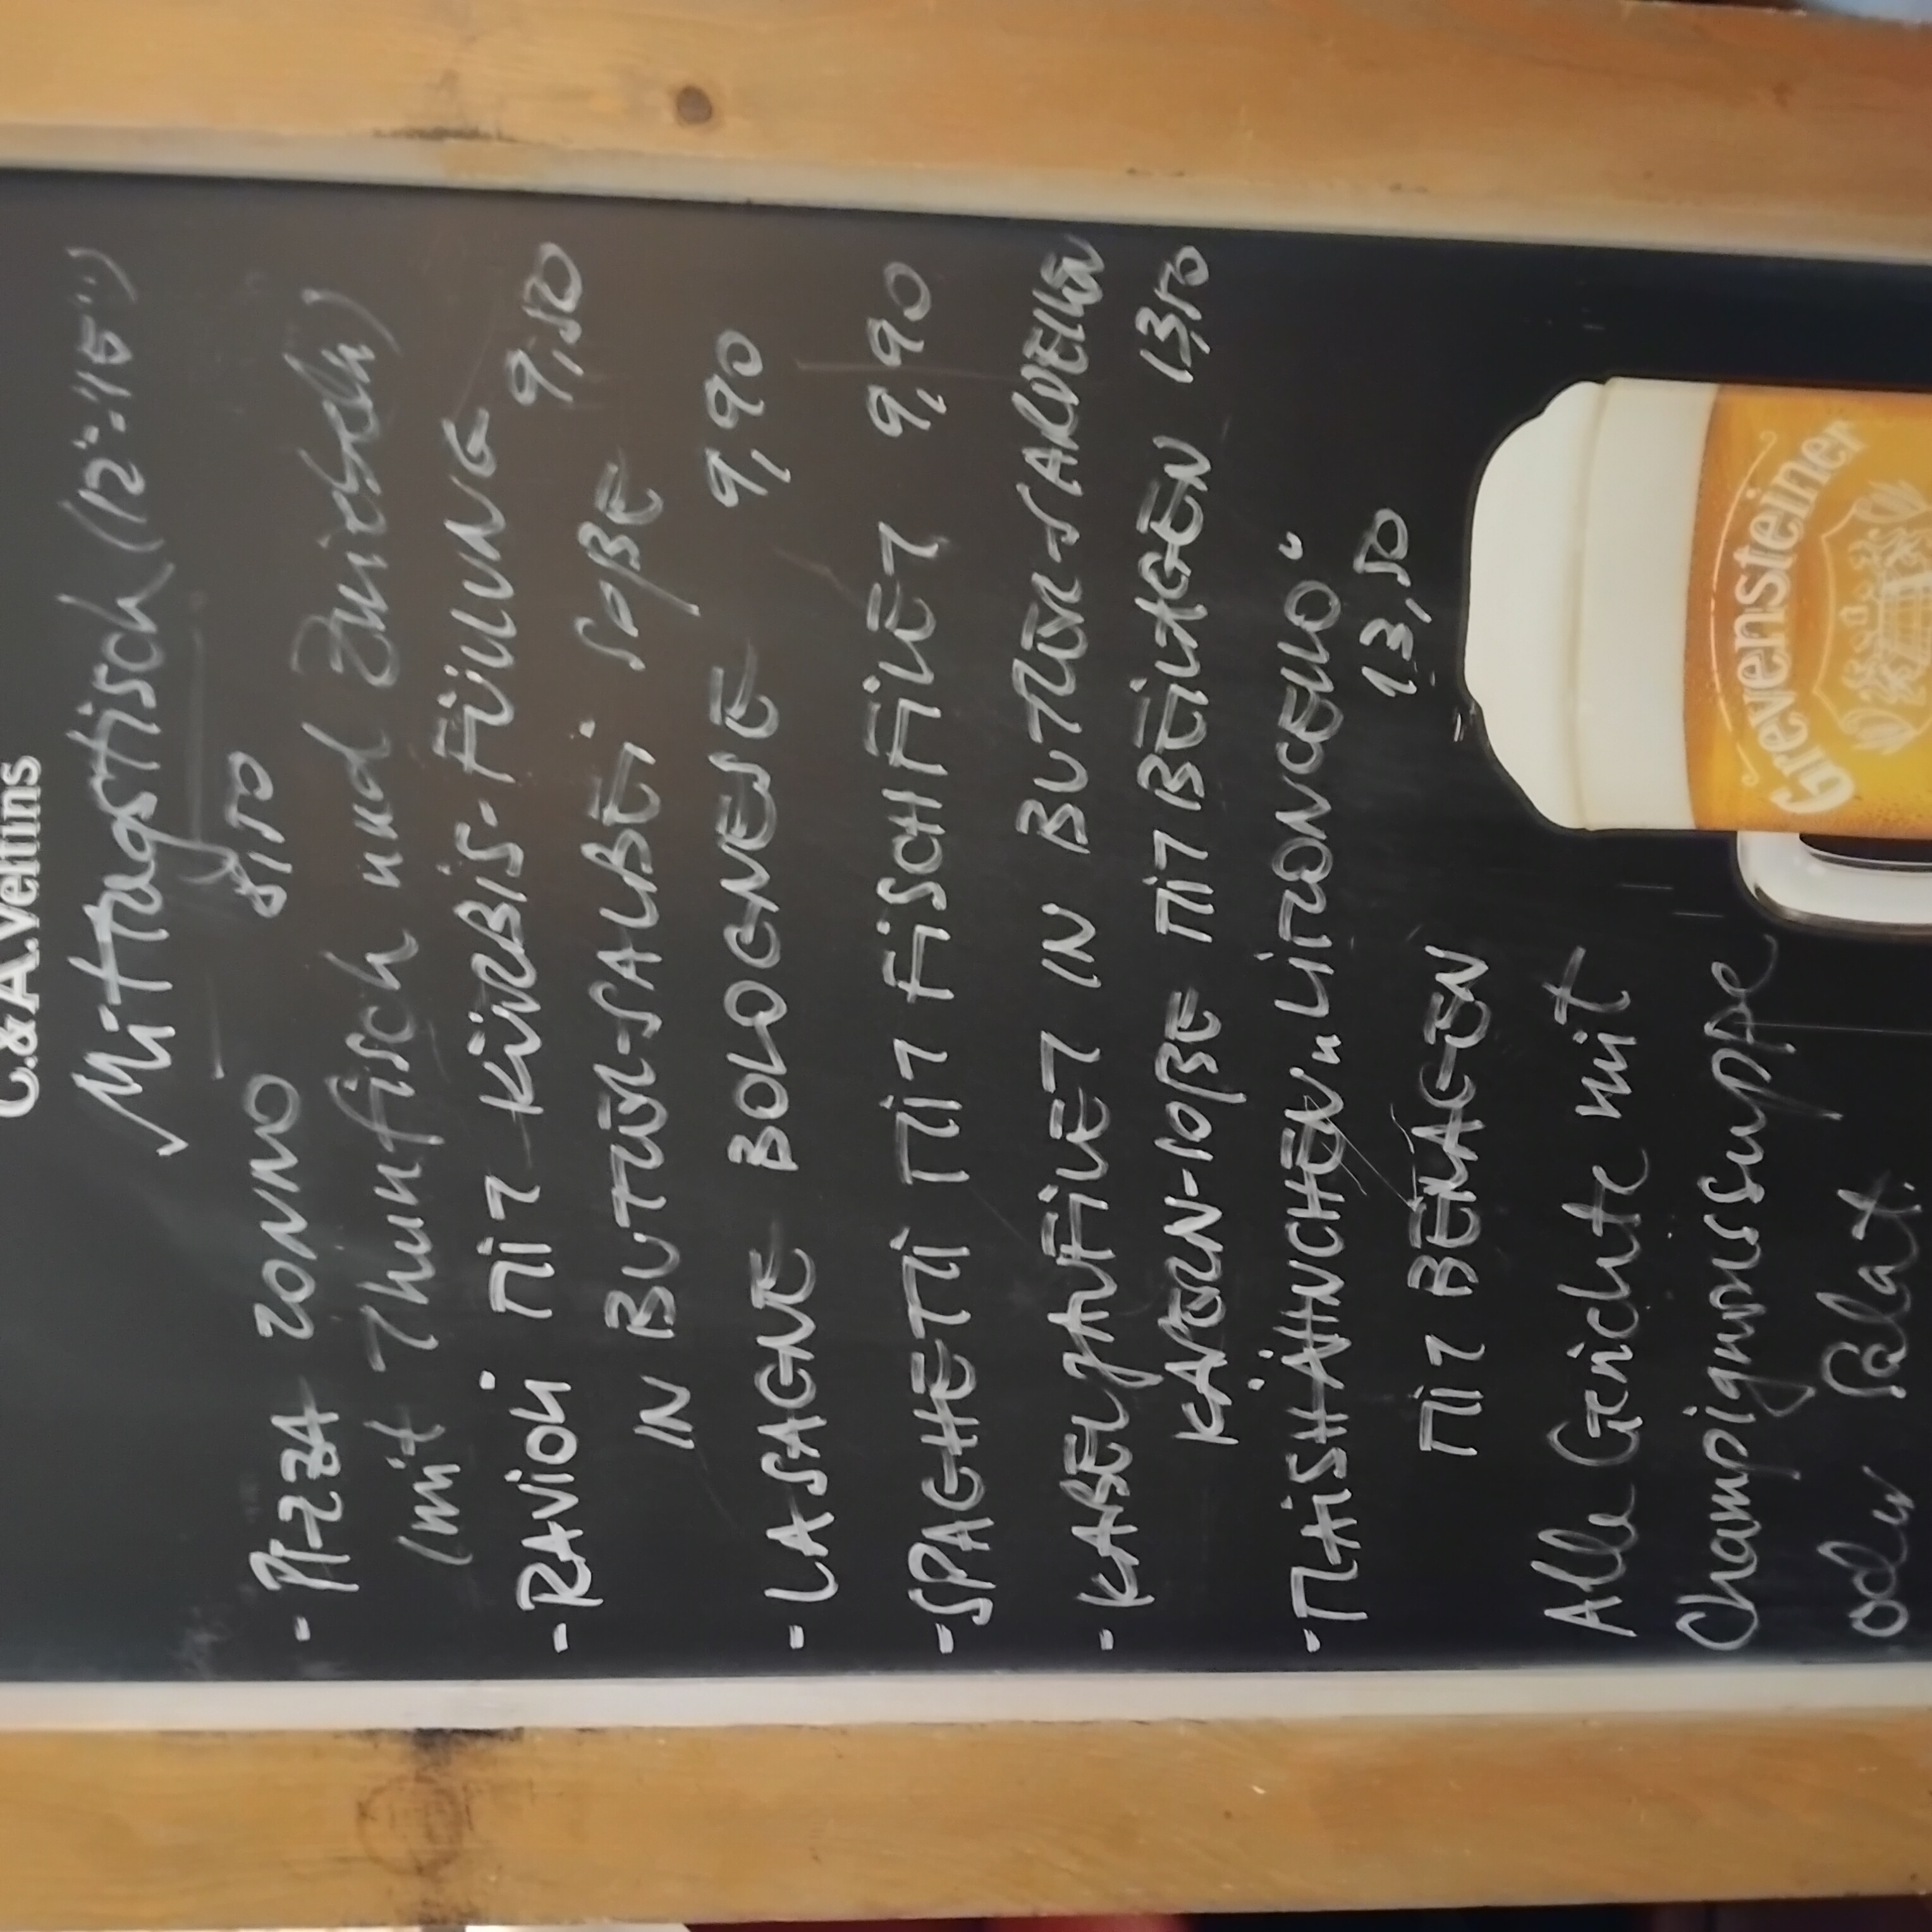 C.&A.Veltins
Mittagstisch (12⁰⁰-15⁰⁰)
- PIZZA TONNO 8,50
(mit Thunfisch und Zwiebeln)
- RAVIOLI MIT KÜRBIS-FÜLLUNG
IN BUTTER-SALBEI SOßE 9,50
- LASAGNE BOLOGNESE 9,90
- SPAGHETTI MIT FISCHFILET 9,90
- KABELJAUFILET IN BUTTER-SARDELLEN
KAPERN-SOßE MIT BEILAGEN 13,50
- MAISHÄHNCHEN "LIMONCELLO"
MIT BEILAGEN 13,50
Alle Gerichte mit
Champignonssuppe
oder Salat.
Grevensteiner